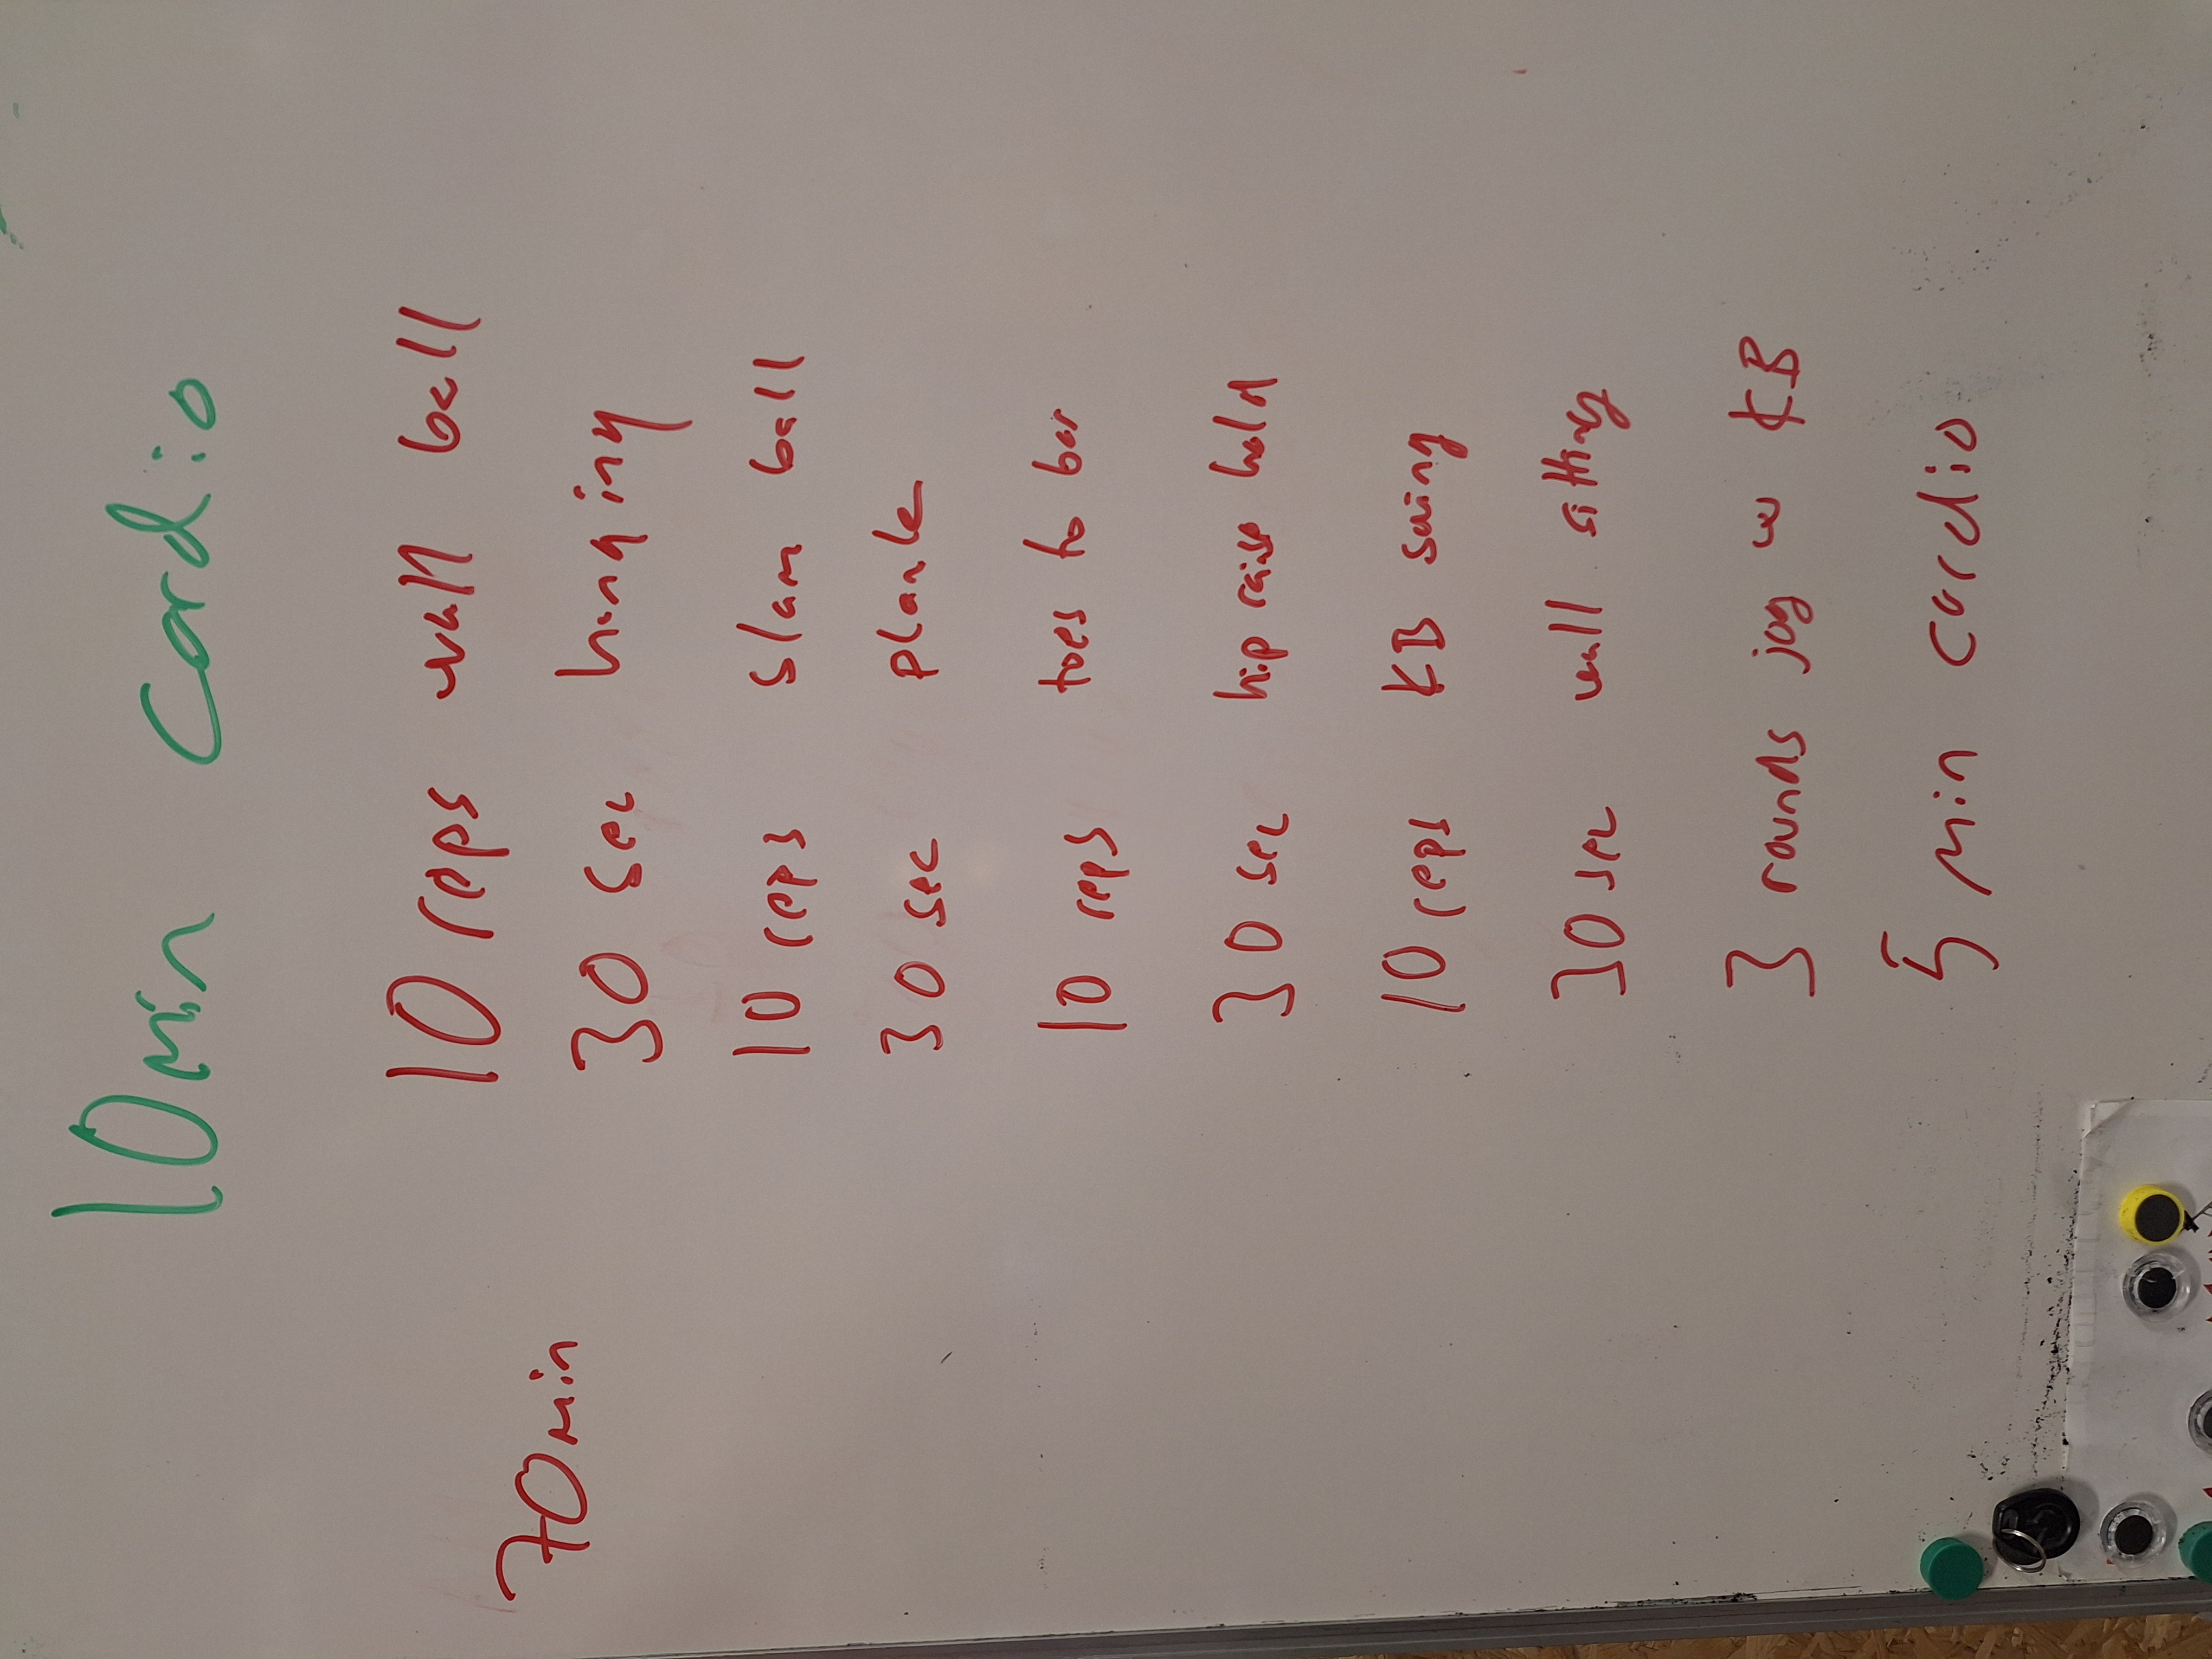 10 min Cardio
10 reps wall ball
70 min
30 sec hanging
10 reps slam ball
30 sec plank
10 reps toes to bar
30 sec hip raise hold
10 reps KB swing
30 sec wall sitting
3 rounds jog w KB
5 min cardio